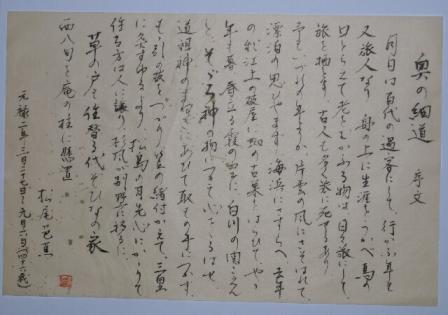 奥の細道 序文
月日は百代の過客にして、行かふ年も
又旅人なり。舟の上に生涯をうかべ馬の
口とらえて老をむかふる物は日々旅にして
旅を栖とす。古人も多く旅に死せるあり。
予もいづれの年よりか片雲の風にさそはれて
漂泊の思ひやまず、海浜にさすらへ、去年
の秋江上の破屋に蜘の古巣をはらひて、やゝ
年も暮、春立る霞の空に、白川の関こえん
と、そゞろ神の物につきて心をくるはせ、
道祖神のまねきにあひて取もの手につかず、
もゝ引の破をつづり、笠の緒付かえて、三里
に灸すゆるより、松島の月先心にかゝりて
住る方は人に譲り、杉風が別墅に移るに、
草の戸も住替る代ぞひなの家
面八句を庵の柱に懸置
松尾芭蕉